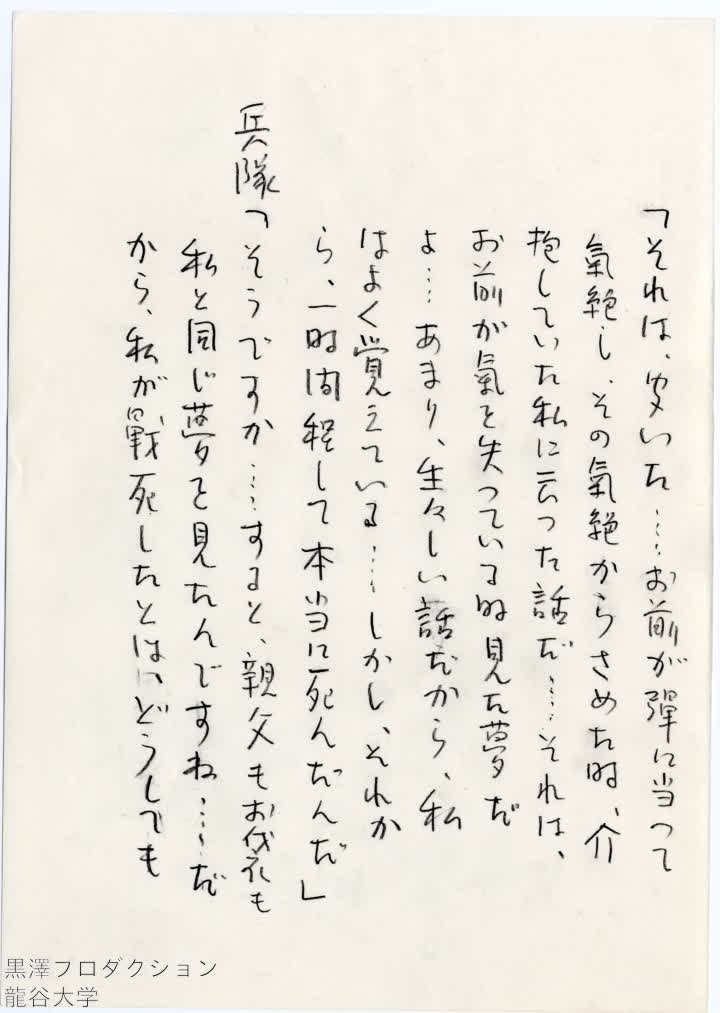 「それは、聞いた……お前が彈に当って
氣絶し、その氣絶からさめた時、介
抱していた私に云った話だ……それは、
お前が氣を失っている時見た夢だ
よ……あまり、生々しい話だから、私
はよく覚えている……しかし、それか
ら、一時間程して本当に死んだんだ」
兵隊「そうですか……すると、親父もお袋も
私と同じ夢を見たんですね……だ
から、私が戰死したとは、どうしても
黒澤プロダクション
龍谷大学